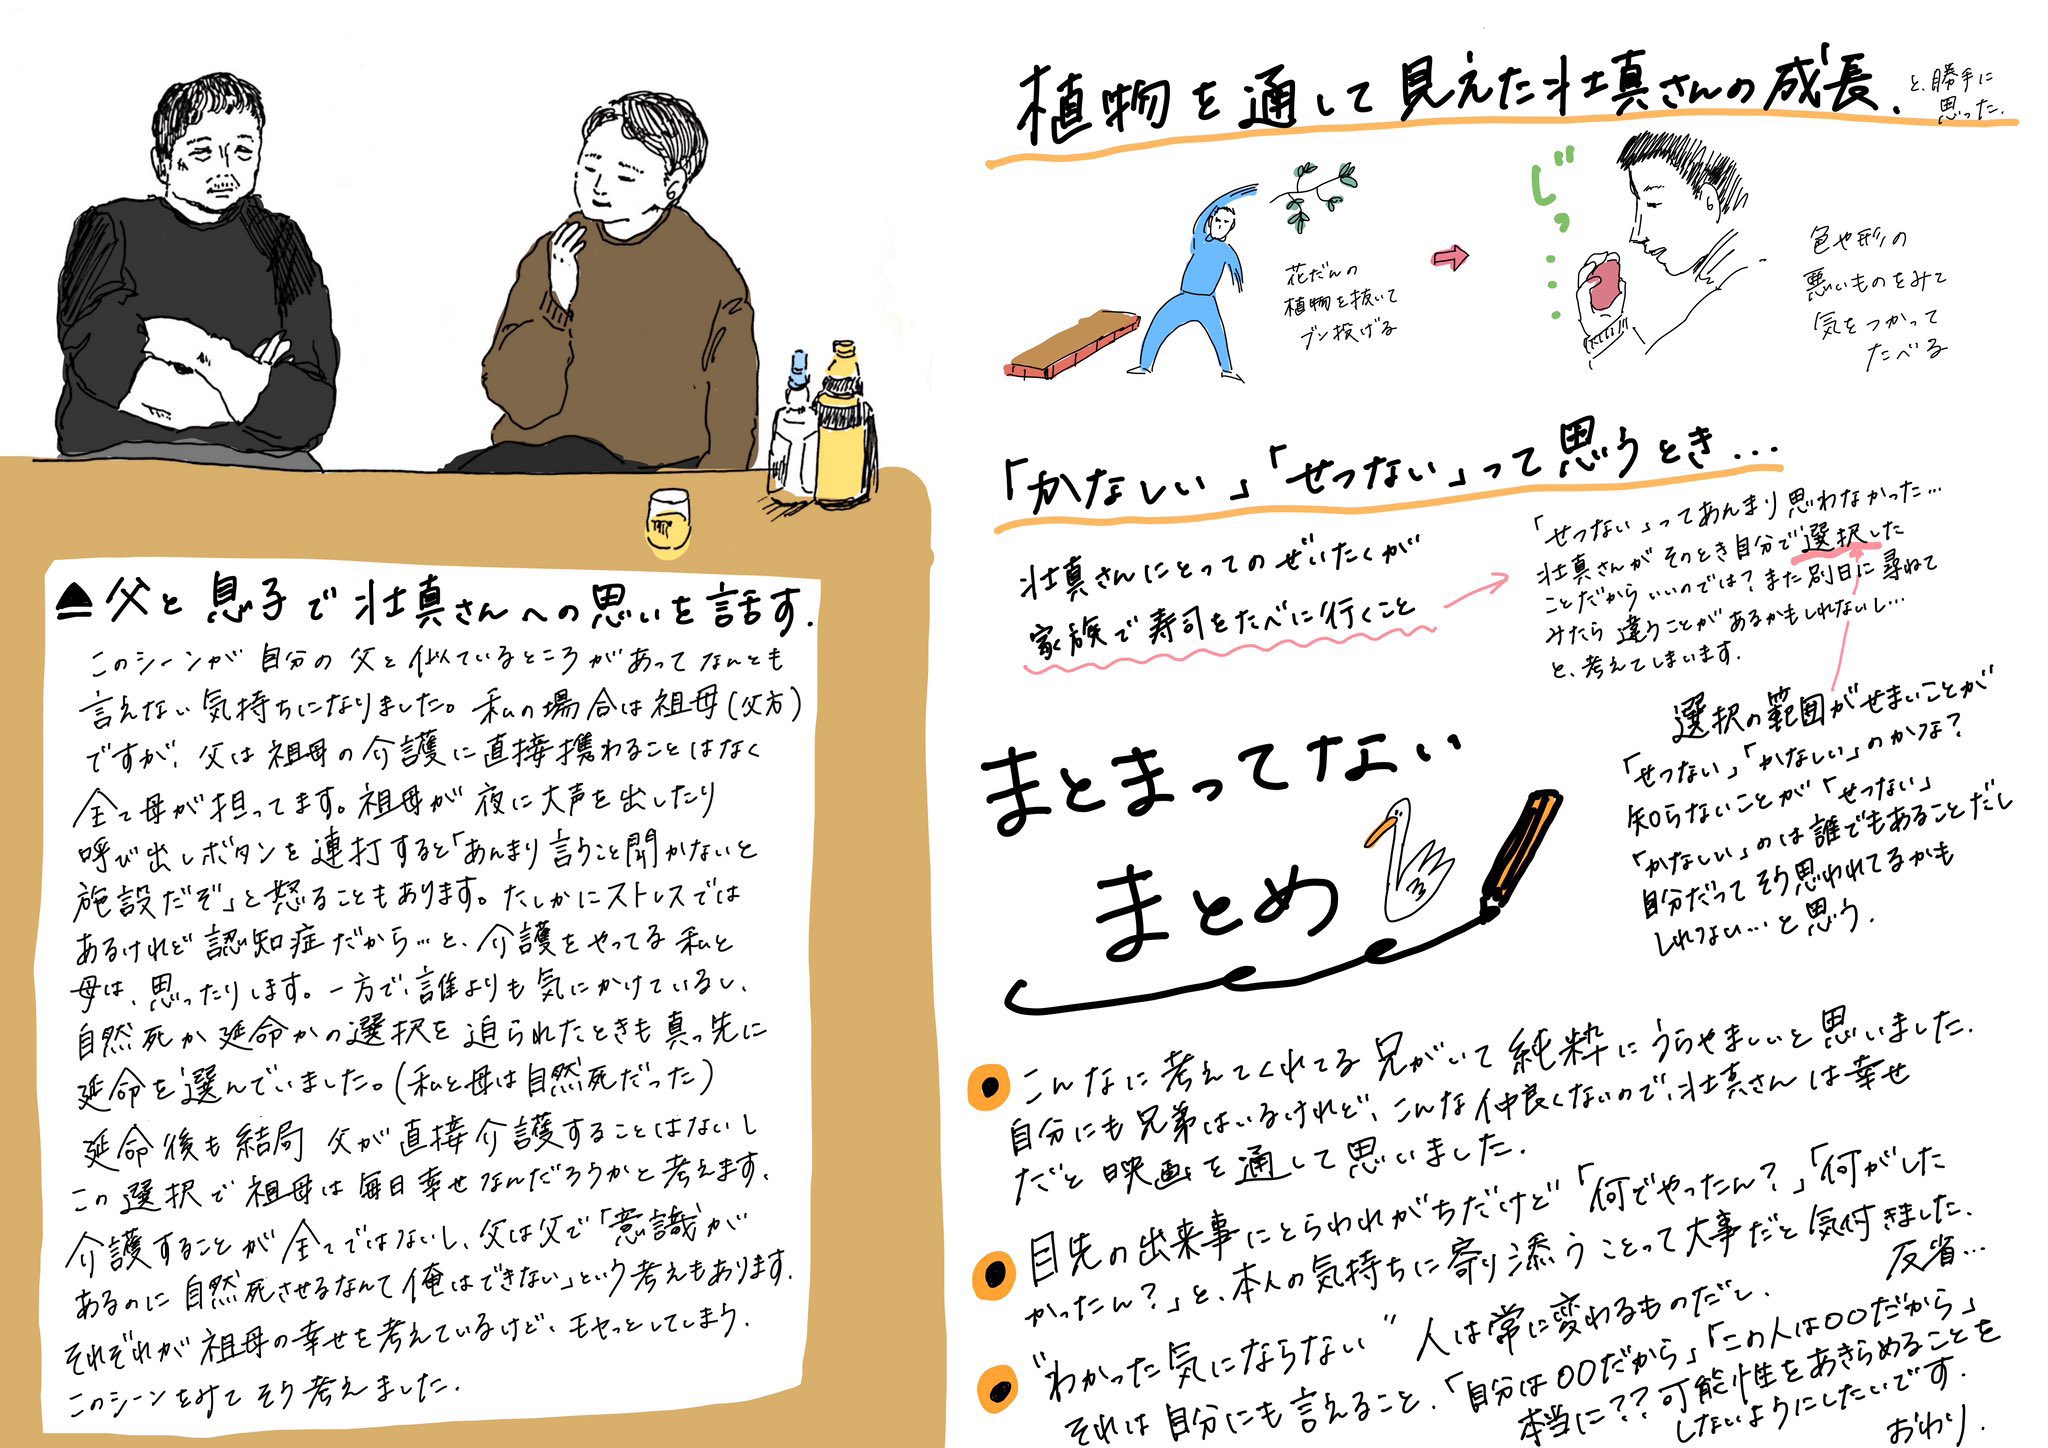 ▲父と息子で壮真さんへの思いを話す.
このシーンが自分の父と似ているところがあってなんとも
言えない気持ちになりました。私の場合は祖母(父方)
ですが、父は祖母の介護に直接携わることはなく
全て母が担ってます。祖母が夜に大声を出したり
呼び出しボタンを連打すると「あんまり言うこと聞かないと
施設だぞ」と怒ることもあります。たしかにストレスでは
あるけれど認知症だから…と、介護をやってる私と
母は、思ったりします。一方で、誰よりも気にかけているし、
自然死か延命かの選択を迫られたときも真っ先に
延命を選んでいました。(私と母は自然死だった)
延命後も結局父が直接介護することはないし
この選択で祖母は毎日幸せなんだろうかと考えます.
介護することが全てではないし、父は父で「意識が
あるのに自然死させるなんて俺はできない」という考えもあります.
それぞれが祖母の幸せを考えているけど、モヤっとしてしまう.
このシーンをみてそう考えました.
植物を通して見えた壮真さんの成長.
と、勝手に
思った.
花だんの
植物を抜いて
ブン投げる
じっ…
色や形の
悪いものをみて
気をつかって
たべる
「かなしい」「せつない」って思うとき…
壮真さんにとってのぜいたくが
家族で寿司をたべに行くこと
「せつない」ってあんまり思わなかった…
壮真さんがそのとき自分で選択した
ことだからいいのでは?また別日に尋ねて
みたら違うことがあるかもしれないし…
と、考えてしまいます.
選択の範囲がせまいことが
「せつない」「かなしい」のかな?
知らないことが「せつない」
「かなしい」のは誰でもあることだし
自分だってそう思われてるかも
しれない…と思う.
まとまってない
まとめ
こんなに考えてくれてる兄がいて純粋にうらやましいと思いました.
自分にも兄弟はいるけれど、こんな仲良くないので、壮真さんは幸せ
だと映画を通して思いました.
目先の出来事にとらわれがちだけど「何でやったん?」「何がした
かったん?」と、本人の気持ちに寄り添うことって大事だと気付きました.
反省…
"わかった気にならない" 人は常に変わるものだし、
それは自分にも言えること、「自分は○○だから」「この人は○○だから」
本当に??可能性をあきらめることを
しないようにしたいです.
おわり.